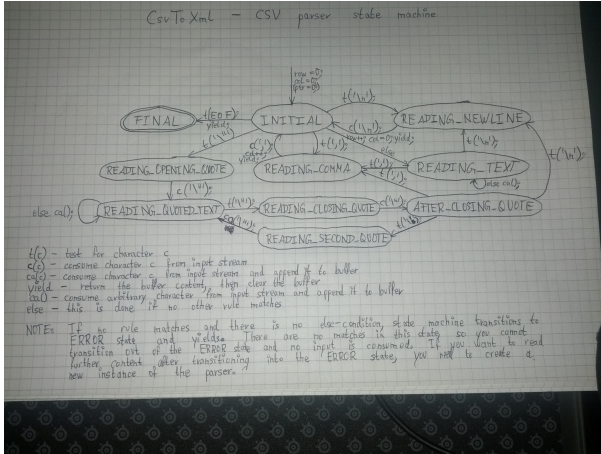 CsvToXml – CSV parser state machine
row=0;
col=0;
t(EOF);
yield;
t('\n');
FINAL
INITIAL
READING_NEWLINE
c('\n');
row++; col=0; yield;
t('\"');
c(',');
col++;
yield;
t(',');
else
t('\n');
t('\n');
READING_OPENING_QUOTE
READING_COMMA
t(',');
READING_TEXT
c('\"');
t(',');
else ca();
else ca();
READING_QUOTED_TEXT
t('\"');
READING_CLOSING_QUOTE
c('\"');
AFTER_CLOSING_QUOTE
ca('\"');
READING_SECOND_QUOTE
t(c) – test for character c
c(c) – consume character c from input stream
ca(c) – consume character c from input stream and append it to buffer
yield – return the buffer content, then clear the buffer
ca() – consume arbitrary character from input stream and append it to buffer
else – this is done if no other rule matches
NOTE: If no rule matches and there is no else-condition, state machine transitions to
ERROR state and yields. There are no matches in this state, so you cannot
transition out of the ERROR state and no input is consumed. If you want to read
further content after transitioning into the ERROR state, you need to create a
new instance of the parser.